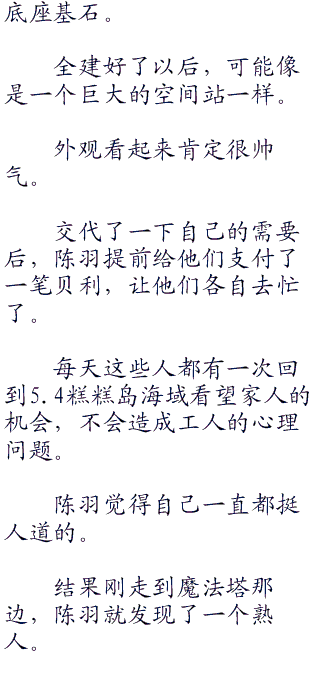 底座基石。
全建好了以后，可能像
是一个巨大的空间站一样。
外观看起来肯定很帅
气。
交代了一下自己的需要
后，陈羽提前给他们支付了
一笔贝利，让他们各自去忙
了。
每天这些人都有一次回
到5.4糕糕岛海域看望家人的
机会，不会造成工人的心理
问题。
陈羽觉得自己一直都挺
人道的。
结果刚走到魔法塔那
边，陈羽就发现了一个熟
人。